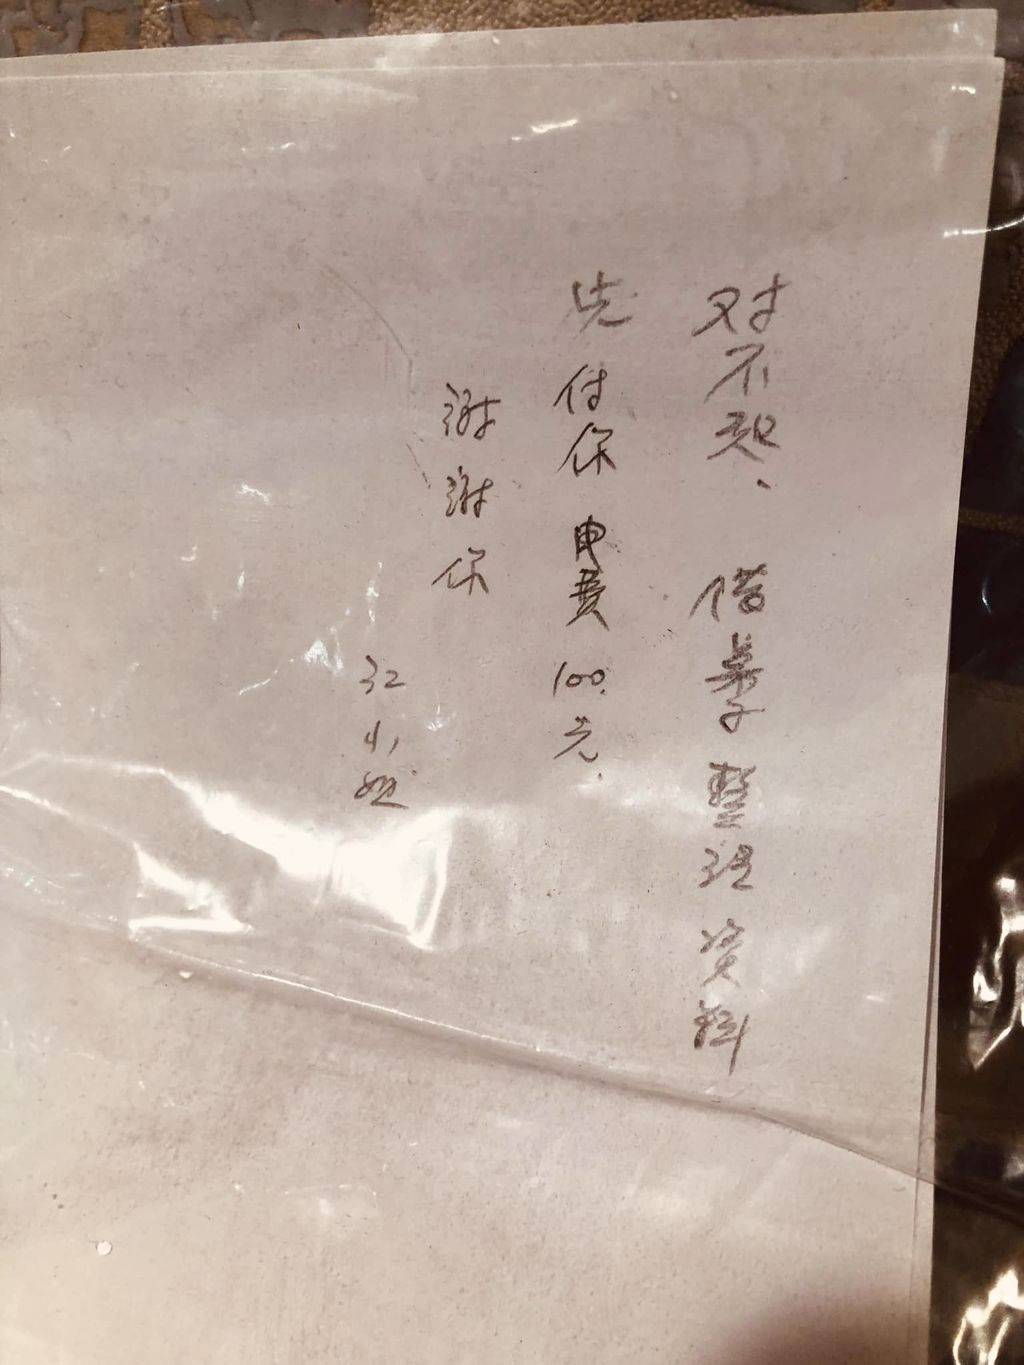 对不起、借桌子整理资料
先付你电费100元.
谢谢你
江小姐